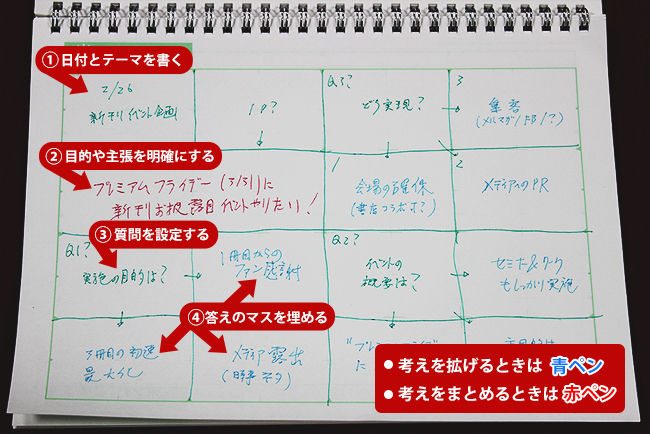 ① 日付とテーマを書く
2/26
新刊イベント企画
1P?
Q3?
どう実現?
3
集客
(メルマガ/FB/?)
② 目的や主張を明確にする
プレミアムフライデー(3/31)に
新刊お披露目イベントやりたい!
1
会場の確保
(書店コラボ?)
2
メディアのPR
③ 質問を設定する
Q1?
実施の目的は?
1冊目からの
ファン感謝
Q2?
イベントの
概要は?
セミナー&ワーク
もしっかり実施
④ 答えのマスを埋める
3冊目の初速
最大化
メディア露出
(時事ネタ)
に
● 考えを拡げるときは 青ペン
● 考えをまとめるときは 赤ペン